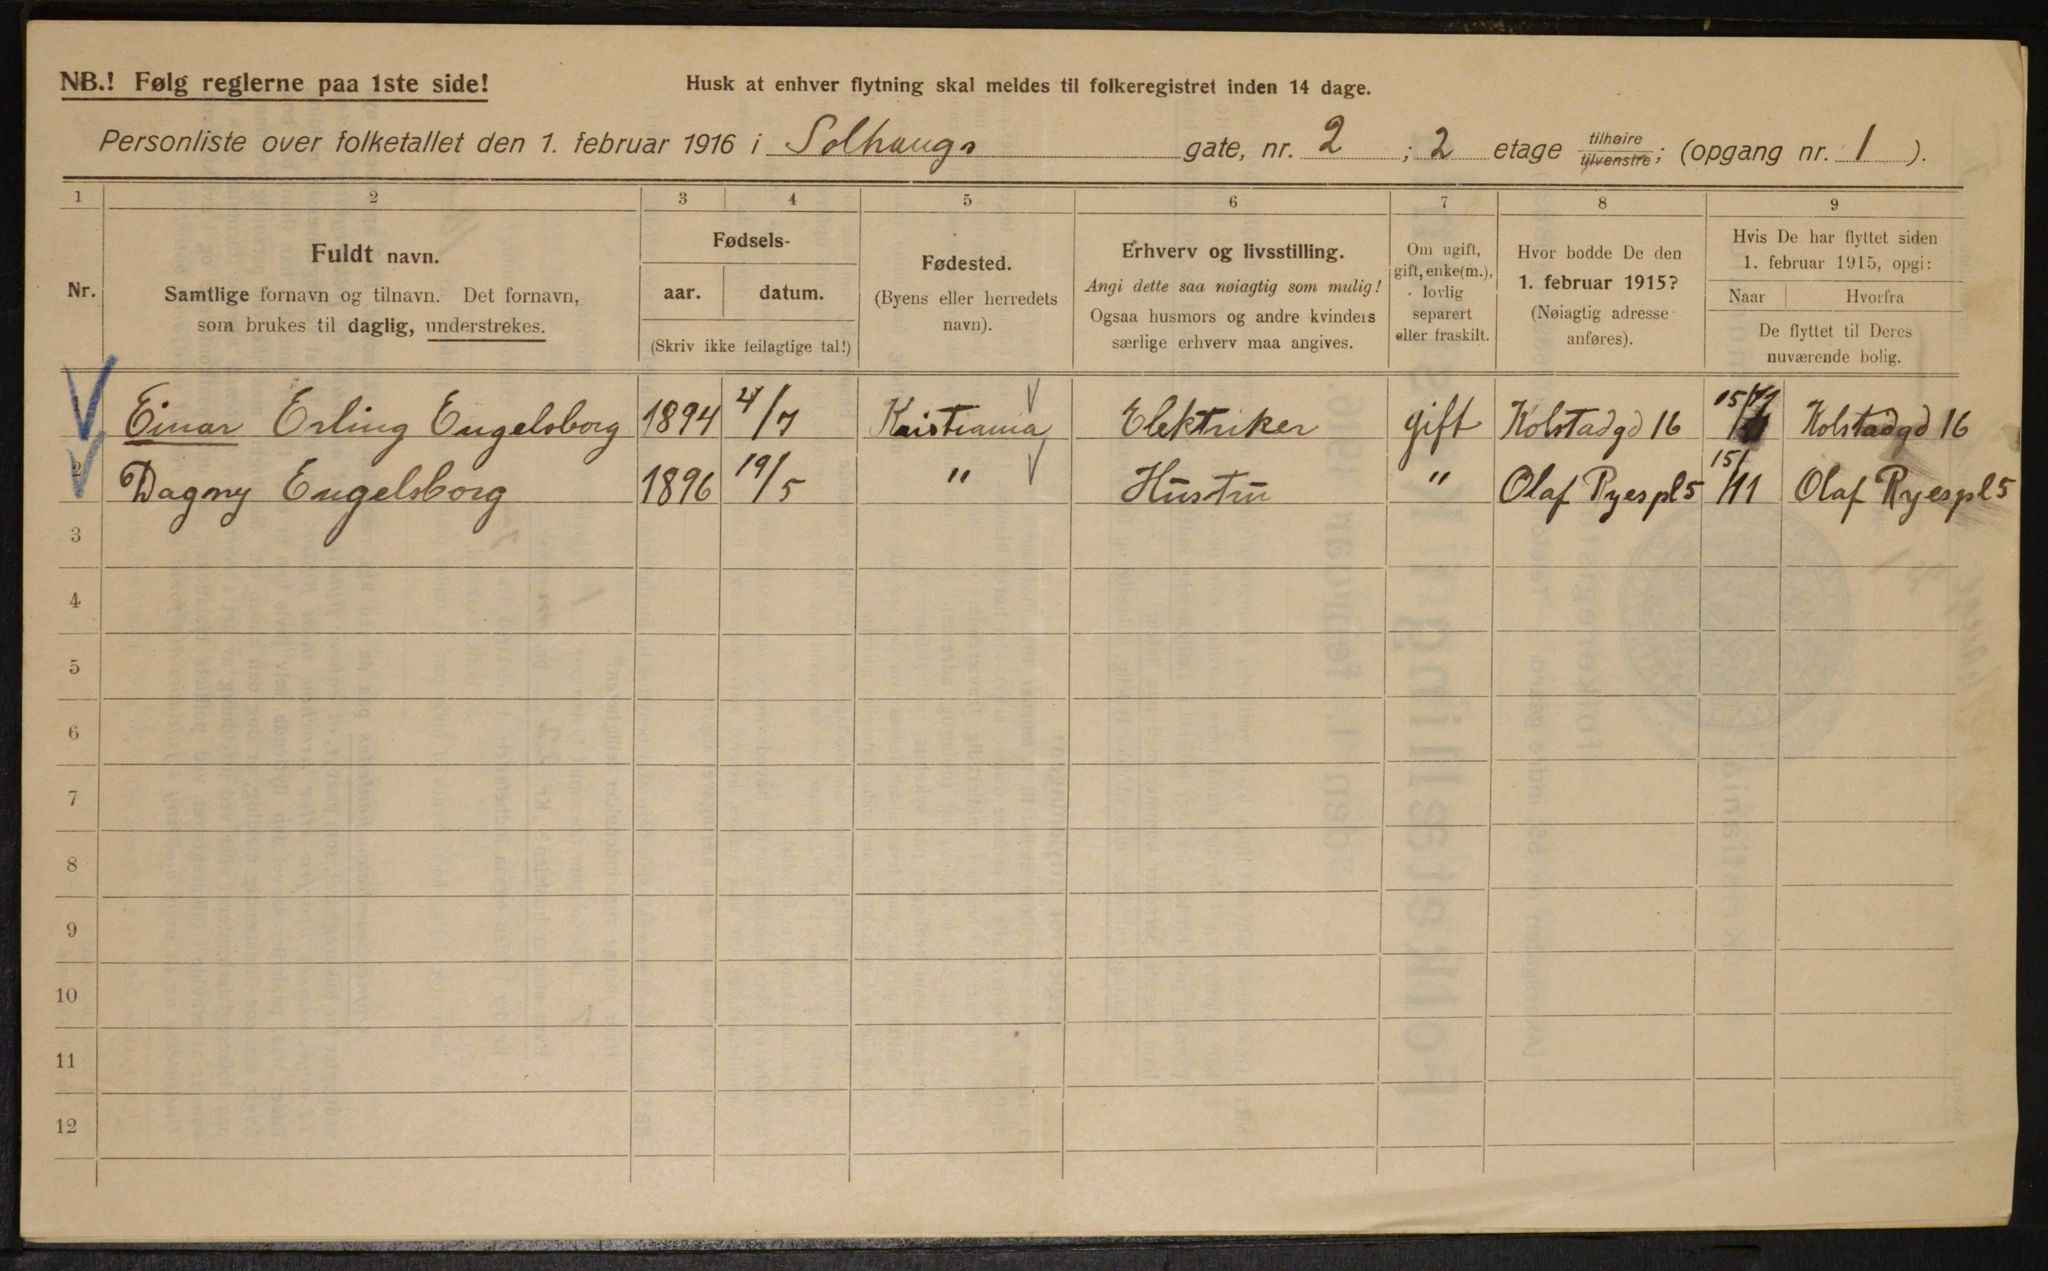 NB.! Følg reglerne paa 1ste side!
Husk at enhver flytning skal meldes til folkeregistret inden 14 dage.
Personliste over folketallet den 1. februar 1916 i Solhaugs gate, nr. 2 ; 2 etage tilhøire/tilvenstre; (opgang nr. 1 ).
1 2 3 4 5 6 7 8 9
Nr.
Fuldt navn.
Samtlige fornavn og tilnavn. Det fornavn,
som brukes til daglig, understrekes.
Fødsels-
aar. datum.
(Skriv ikke feilagtige tal!)
Fødested.
(Byens eller herredets
navn).
Erhverv og livsstilling.
Angi dette saa nøiagtig som mulig!
Ogsaa husmors og andre kvinders
særlige erhverv maa angives.
Om ugift,
gift, enke(m.),
lovlig
separert
eller fraskilt.
Hvor bodde De den
1. februar 1915?
(Nøiagtig adresse
anføres).
Hvis De har flyttet siden
1. februar 1915, opgi:
Naar Hvorfra
De flyttet til Deres
nuværende bolig.
Einar Erling Engelsborg 1894 4/7 Kristiania Elektriker gift Kolstadgd 16 15/11 Kolstadgd 16
2 Dagny Engelsborg 1896 19/5 " Hustru " Olaf Ryespl 5 15/11 Olaf Ryespl 5
3
4
5
6
7
8
9
10
11
12